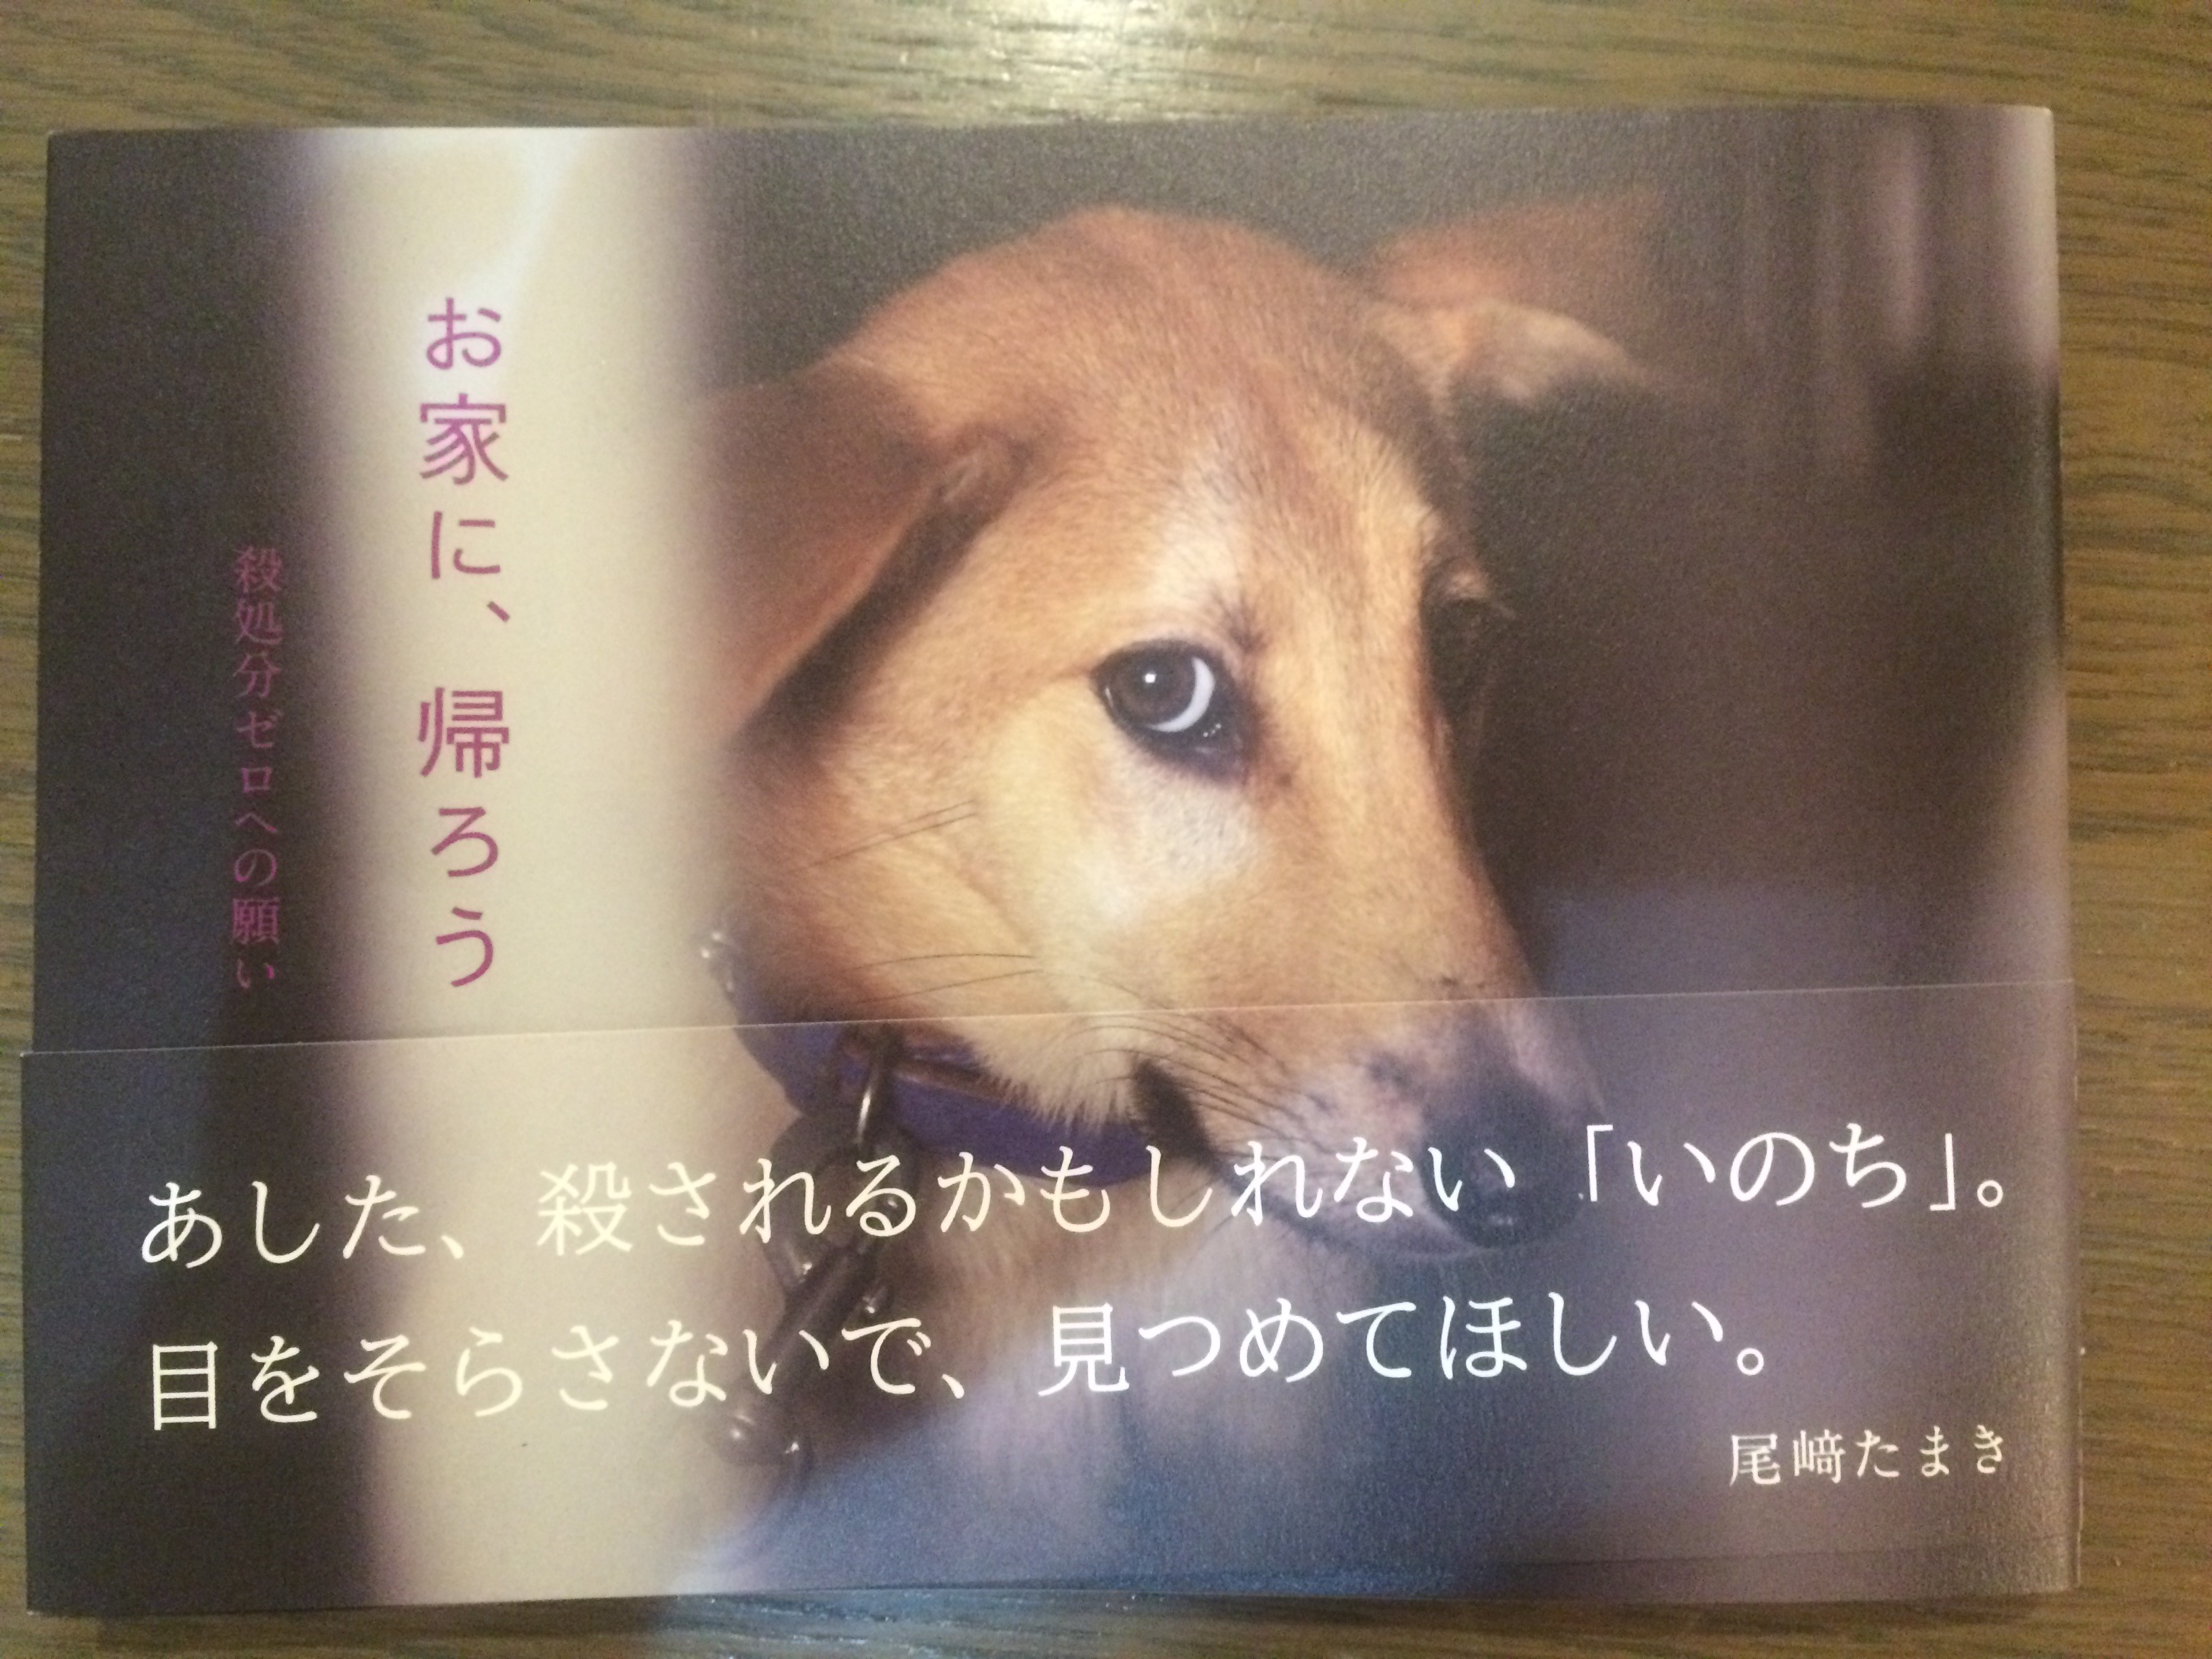 お家に、帰ろう
殺処分ゼロへの願い
あした、殺されるかもしれない「いのち」。
目をそらさないで、見つめてほしい。
尾﨑たまき